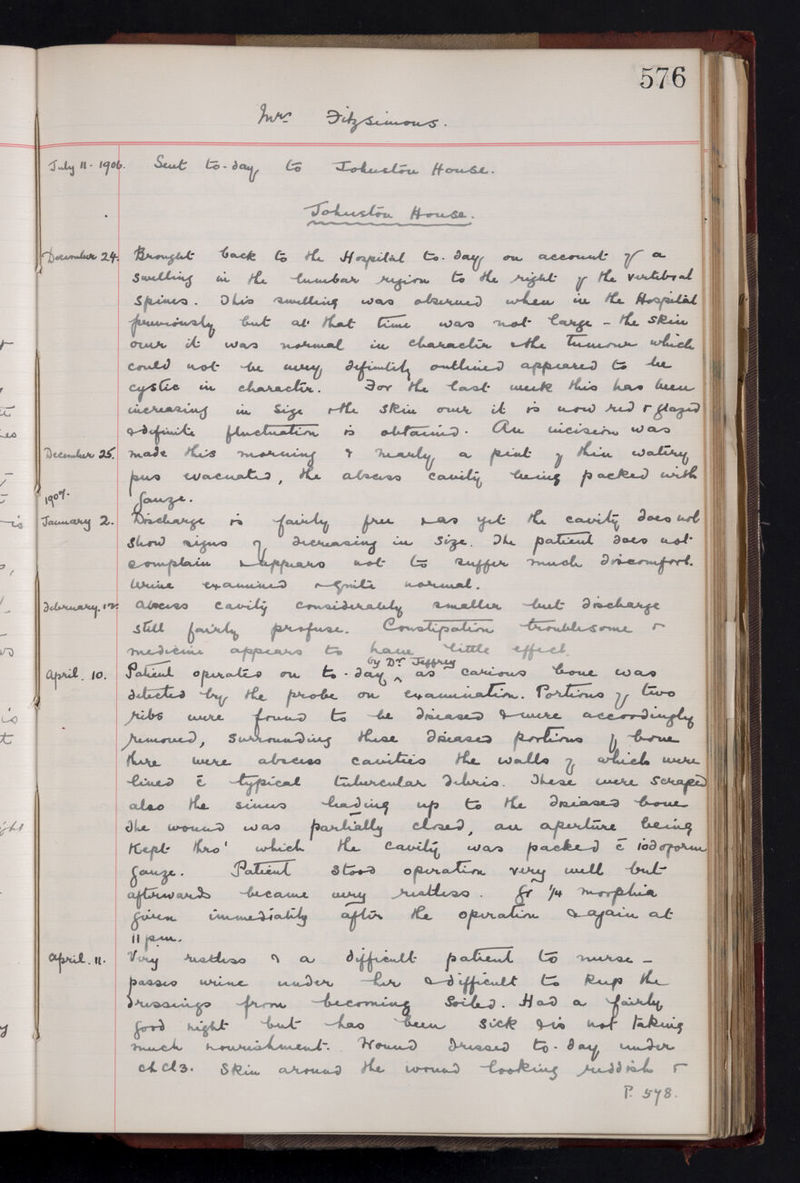 576
Mrs Fitzsimons.
July 11 - 1906. Sent to-day to Johnston House.
Johnston House.
December 24. Brought back to the Hospital to-day on account of a
swelling in the lumbar region to the right of the vertebral
spines. This swelling was observed when in the Hospital
previously but at that time was not large - the skin
over it was normal in character & the tumour which
could not be very definitely outlined appeared to be
cystic in character. For the last week this has been
increasing in size & the skin over it is now red & glazed
& definite fluctuation is obtained. An incision was
December 25. made this morning & nearly a pint of thin watery
pus evacuated, the abscess cavity being packed with
1907. gauze.
January 2. Discharge is fairly free & as yet the cavity does not
show signs of decreasing in size. The patient does not
complain & appears not to suffer much discomfort.
Urine examined & quite normal.
February. 12. Abscess cavity considerably smaller but discharge
still fairly profuse. Constipation troublesome &
medicine appears to have little effect.
by Dr Jeffrey
April. 10. Patient operated on to-day ^ as carious bone was
detected by the probe on examination. Portions of two
ribs were found to be diseased & were accordingly
removed, surrounding these diseased portions of bone
there were abscess cavities the walls of which were
lined c̄ typical tubercular debris. These were scraped
also the sinus leading up to the diseased bone
The wound was partially closed, an aperture being
kept thro' which the cavity was packed c̄ iodoform
gauze. Patient stood operation very well but
afterwards became very restless. gr 1/4 morphia
given immediately after the operation & again at
11 pm.
April. 11. Very restless & a difficult patient to nurse -
passes urine under her & difficult to keep the
dressings from becoming soiled. Had a fairly
good night but has been sick & is not taking
much nourishment. Wound dressed to-day under
ch cl3. Skin around the wound looking reddish &
P. 578.